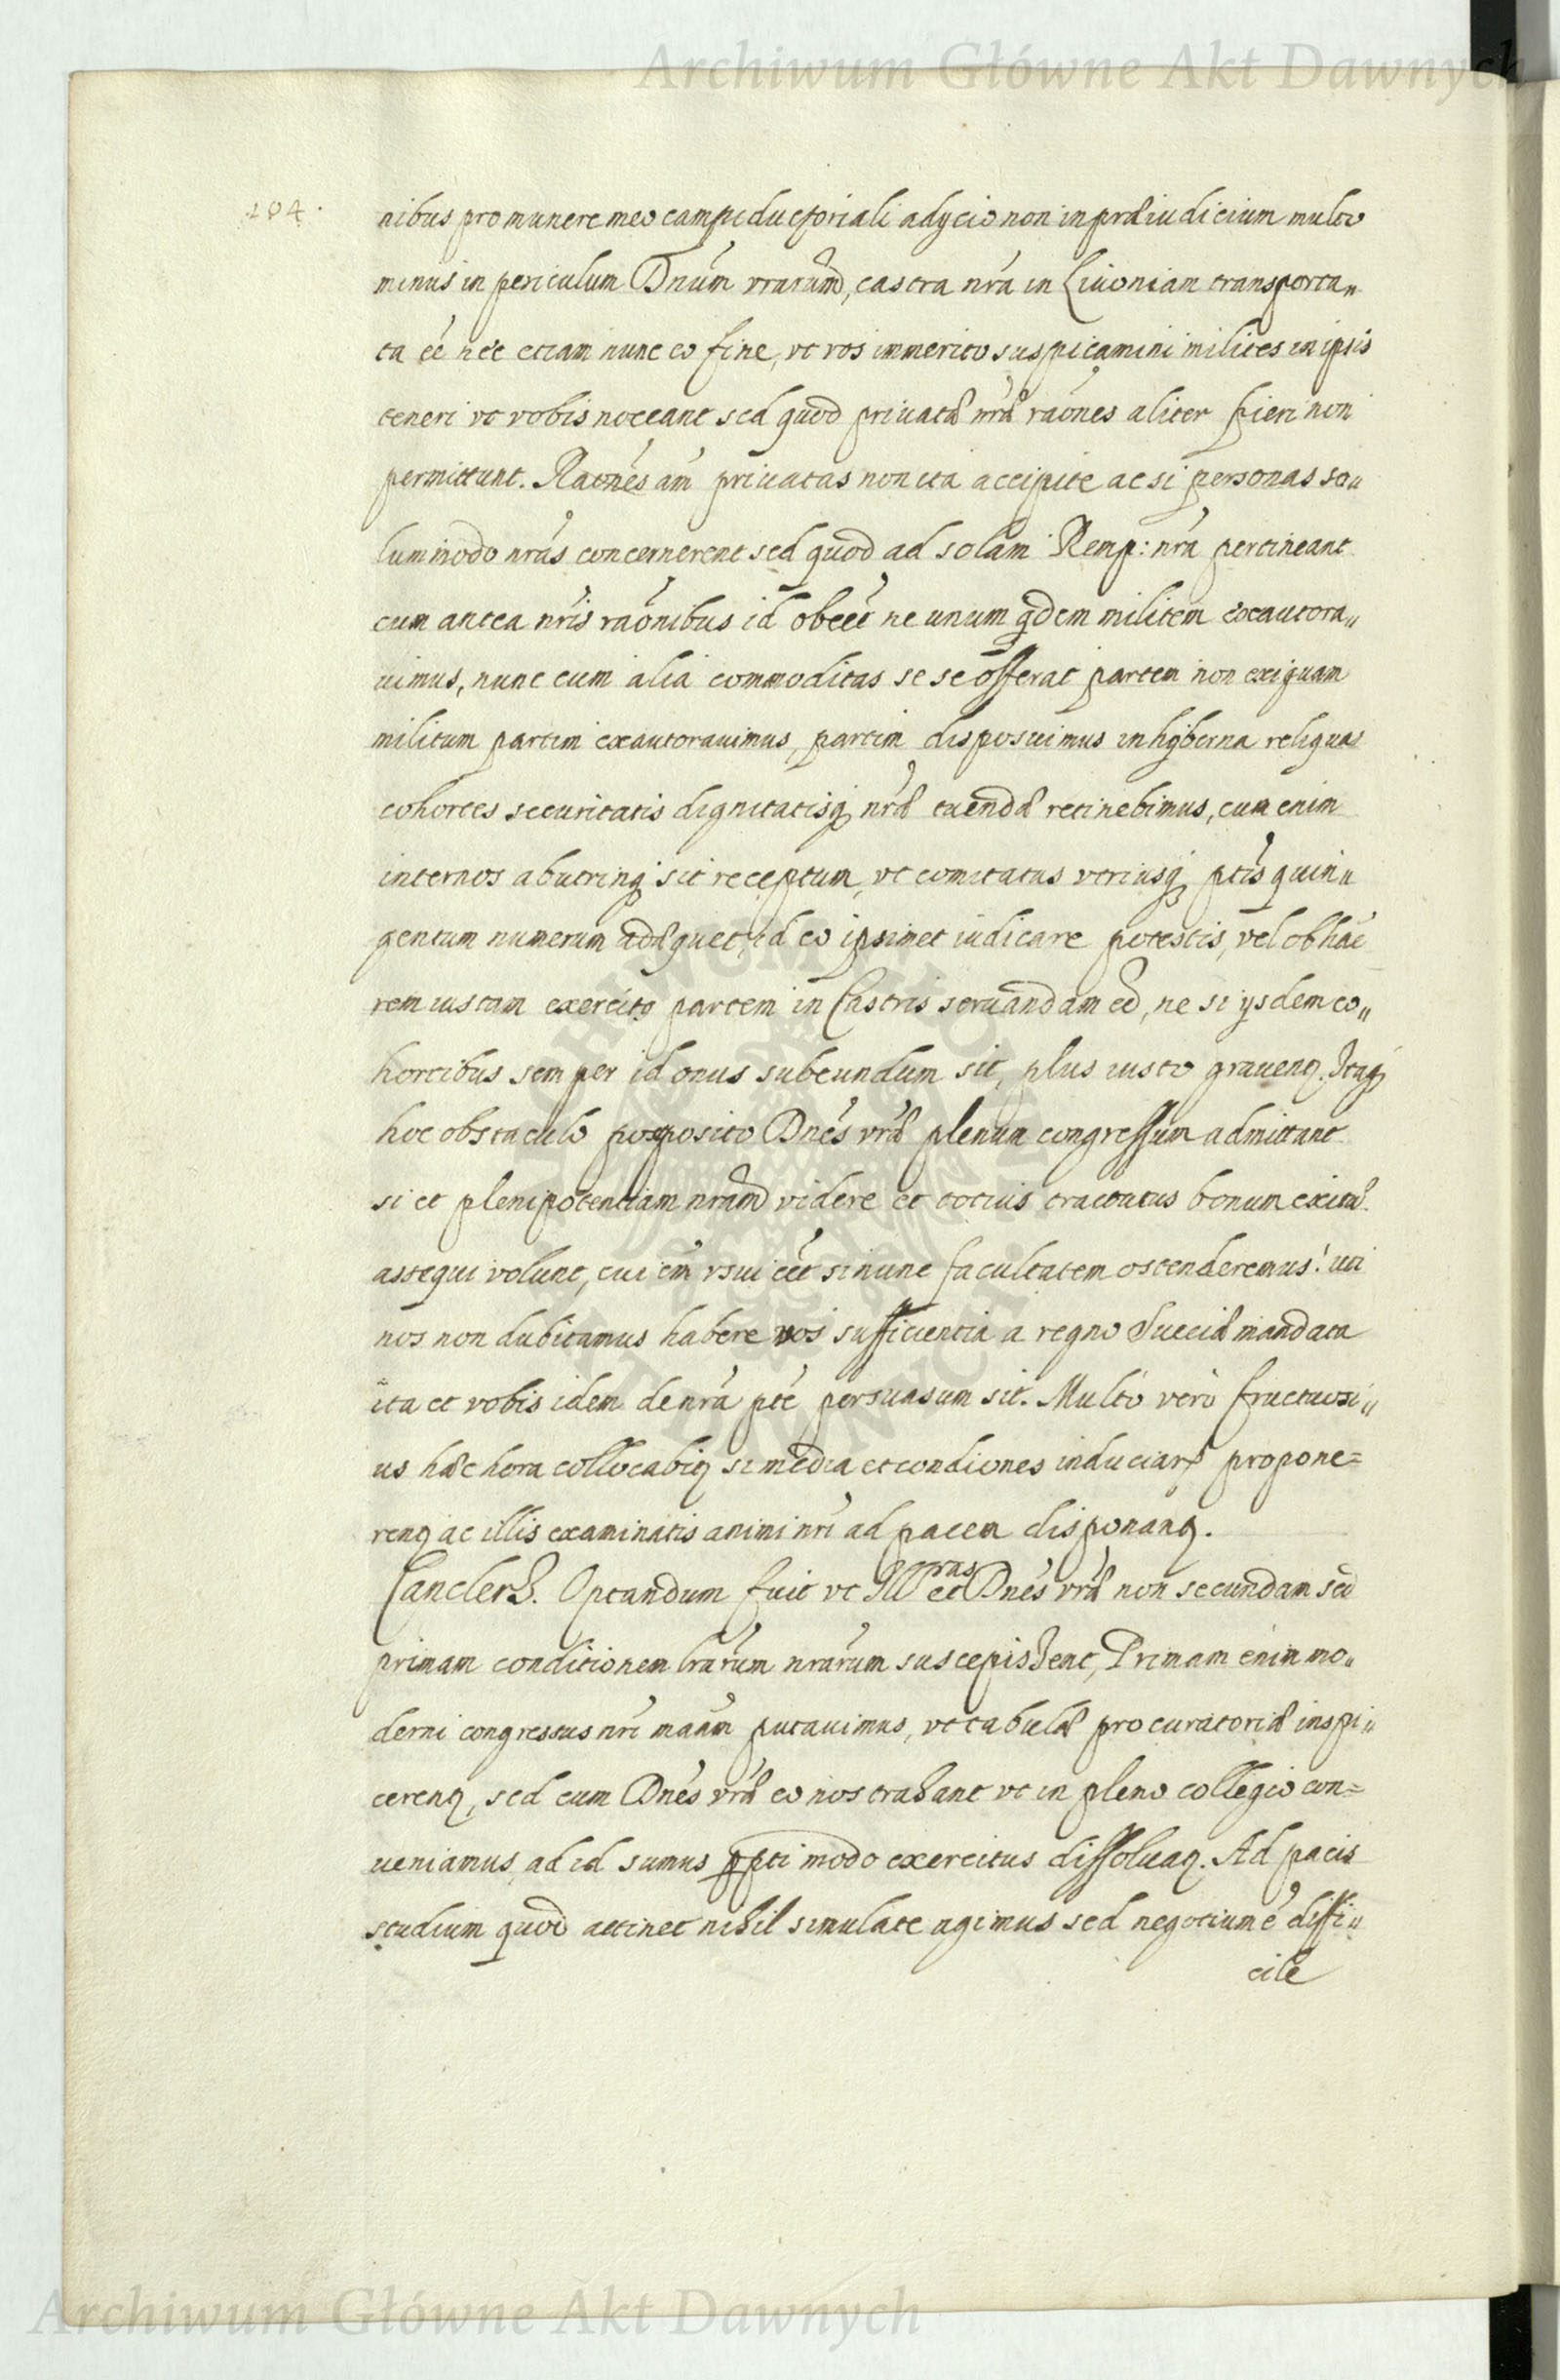 Archiwum Główne Akt Dawnych
204.
nibus pro munere meo campiductoriali adycio non in præiudicium multo
minus in periculum Dnūm vrarum, castra nrā in Liuoniam transporta„
ta eē nec etiam nunc eo fine, vt vos immerito suspicamini milites in ipsis
teneri vt vobis noceant sed quod priuatæ nræ raōnes aliter fieri non
permittunt. Raōnes aūm priuatas non ita accipite ac si personas so„
lummodo nrās concernerent sed quod ad solam Remp: nrā pertineant
cum antea nrīs raōnibus id obeēt ne unum qdem militem exautora„
uimus, nunc cum alia commoditas se se offerat partem non exiguam
militum partim exautorauimus, partim disposuimus in hyberna reliquas
cohortes securitatis dignitatisq nræ tuendæ retinebimus, cum enim
inter nos ab utrinq sit receptum, vt comitatus vtriusq ptis quin„
gentum numerum adæquet, id eo ipsimet iudicare potestis, vel ob hāc
rem iustam exercitq partem in Castris seruandam eē, ne si ysdem co„
hortibus semper id onus subeundum sit, plus iusto grauenq. Itaq
hoc obstaculo posposito Dnēs vræ plenum congressum admittant
si et plenipotentiam nram videre et totius tractatus bonum exitū
assequi volunt, cui em vsui eēt si nunc facultatem ostenderemus! uti
nos non dubitamus habere vos sufficientia a regno Sueciæ mandata
ita et vobis idem de nrā pte persuasum sit. Multo verò fructuosi„
us hæc hora collocabiq si media et condiones induciarum propone=
renq ac illis examinatis animi nrī ad pacem disponanq.
Canclerz. Optandum fuit vt Illras et Dnēs vræ non secundam sed
primam conditionem lrarum nrarum suscepishent, Primam enim mo„
derni congressus nrī maām putauimus, vt tabulæ procuratoriæ inspi„
cerenq, sed cum Dnēs vræ eo nos trahant vt in pleno collegio con=
ueniamus, ad id sumus ppti modo exercitus dissoluaq. Ad pacis
studium quod attinet nihil simulate agimus sed negotium ē diffi„
cile
Archiwum Główne Akt Dawnych